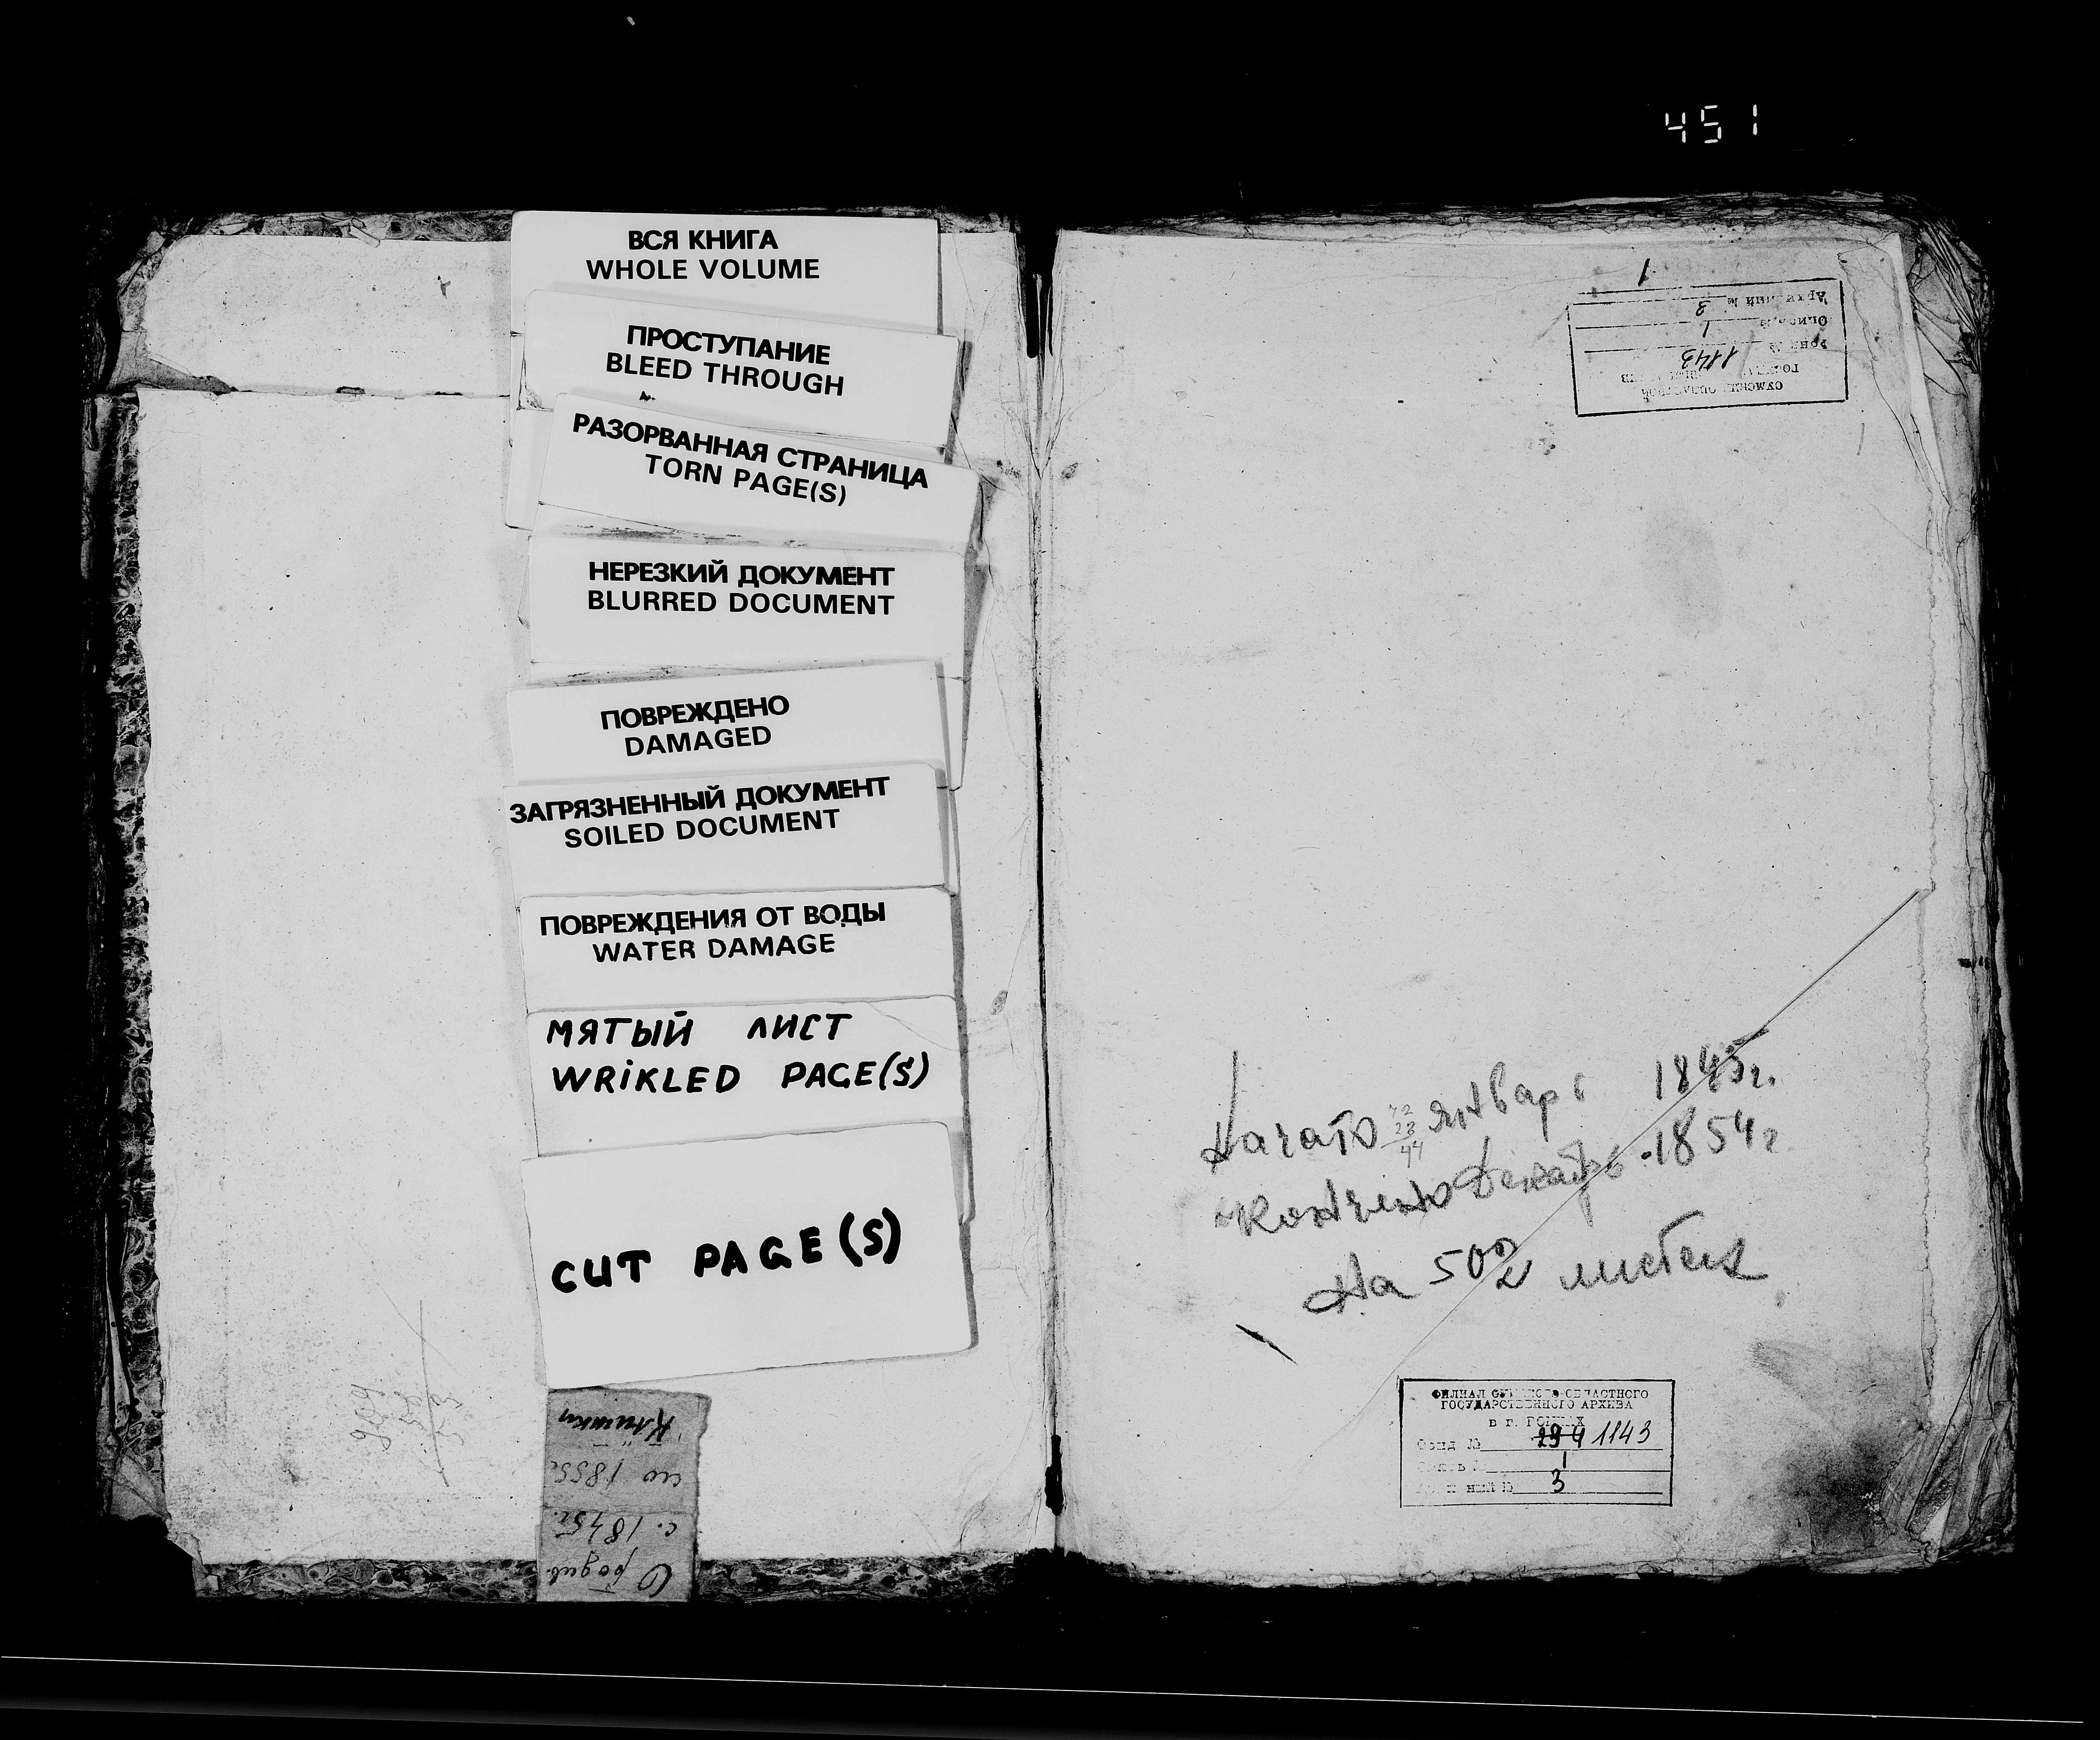 451
ВСЯ КНИГА
WHOLE VOLUME
ПРОСТУПАНИЕ
BLEED THROUGH
РАЗОРВАННАЯ СТРАНИЦА
TORN PAGE(S)
НЕРЕЗКИЙ ДОКУМЕНТ
BLURRED DOCUMENT
ПОВРЕЖДЕНО
DAMAGED
ЗАГРЯЗНЕННЫЙ ДОКУМЕНТ
SOILED DOCUMENT
ПОВРЕЖДЕНИЯ ОТ ВОДЫ
WATER DAMAGE
МЯТЫЙ ЛИСТ
WRIKLED PAGE(S)
CUT PAGE(S)
О родив.
с. 1845г.
по 1855г.
Клишки
1
СУМСКИЙ ОБЛАСТНОЙ
Фонд № 1143
Опись № 1
Архивный № 3
Начато январь 1845г.
Кончено Декабрь 1854г.
На 502 листах
ФИЛИАЛ СУМСКОГО ОБЛАСТНОГО
ГОСУДАРСТВЕННОГО АРХИВА
в г. РОМНАХ
Фонд № 294 1143
Опись № 1
Архивный № 3